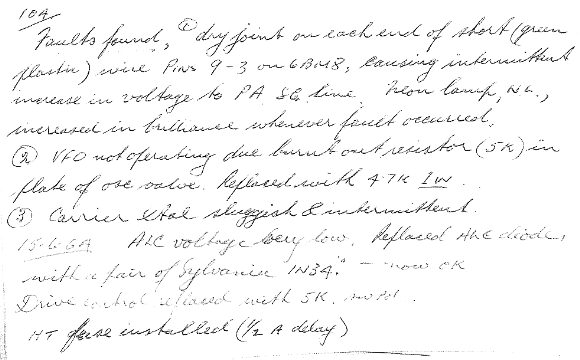 10A
Faults found, ① dry joint on each end of short (green
plastic) wire Pins 9-3 on 6BM8, causing intermittent
increase in voltage to PA SG line. Neon lamp, NL.,
increased in brilliance whenever fault occurred.
② VFO not operating due burnt out resistor (5K) in
plate of osc valve. Replaced with 4.7K 1W.
③ Carrier Xtal sluggish & intermittent.
15-6-6A ALC voltage very low. Replaced ALC diodes
with a pair of Sylvania 1N34A - now OK
Drive control replaced with 5K.
HT fuse installed (1/2 A delay)